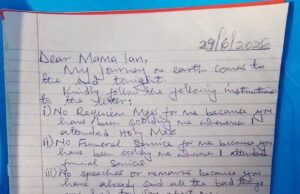 29/6/2026
Dear Mama Ian,
My journey on earth comes to
the end tonight.
Kindly follow the following instructions
to the letter:
i) No Requiem Mass for me because you
have been scolding me whenever I
attended Holy Mass
ii) No Funeral Service for me because you
have been scolding me whenever I attended
funeral service
iii) No speeches or remarks because you
have already said all the bad things